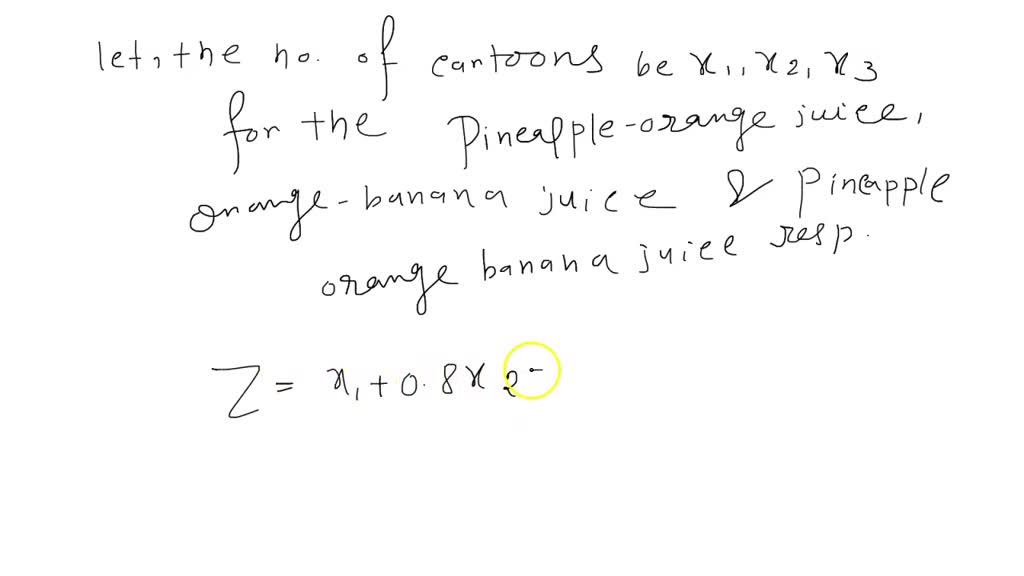 let, the no. of cartoons be x1, x2, x3
for the Pineapple-orange juice,
orange-banana juice & pineapple
orange banana juice resp.
Z = x1 + 0.8x2